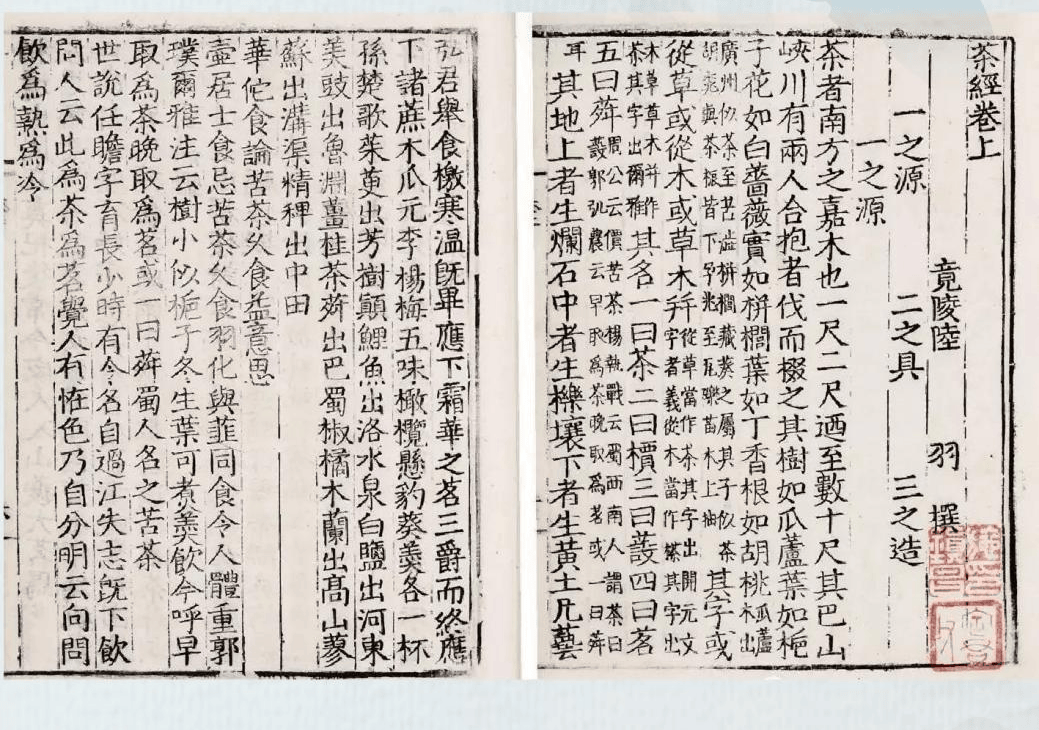 茶經卷上
竟陵陸 羽 撰
一之源 二之具 三之造
一之源
茶者南方之嘉木也一尺二尺迺至數十尺其巴山
峽川有兩人合抱者伐而掇之其樹如瓜蘆葉如梔
子花如白薔薇實如栟櫚葉如丁香根如胡桃瓜蘆木出
廣州似茶至苦澁栟櫚蒲葵之屬其子似茶胡桃與茶根皆下孕兆至瓦礫苗木上抽其字或
從草或從木或草木并從草當作茶其字出開元文字者義從木當作㯆其字出
本草草木并作荼其字出爾雅其名一曰茶二曰檟三曰蔎四曰茗
五曰荈周公云檟苦茶楊執戟云蜀西南人謂茶曰蔎郭弘農云早取爲茶晚取爲茗或一曰荈
耳其地上者生爛石中者生櫟壤下者生黄土凡藝
弘君舉食檄寒温旣畢應下霜華之茗三爵而終應
下諸蔗木瓜元李楊梅五味橄欖懸豹葵羹各一杯
孫楚歌茱萸出芳樹顛鯉魚出洛水泉白鹽出河東
美豉出魯淵薑桂茶荈出巴蜀椒橘木蘭出高山蓼
蘇出溝渠精稗出中田
華佗食論苦茶久食益意思
壺居士食忌苦茶久食羽化與韮同食令人體重郭
璞爾雅注云樹小似梔子冬生葉可煮羹飲今呼早
取爲茶晚取爲茗或一曰荈蜀人名之苦茶
世說任瞻字育長少時有令名自過江失志旣下飲
問人云此爲茶爲茗覺人有恠色乃自分明云向問
飲爲熱爲冷